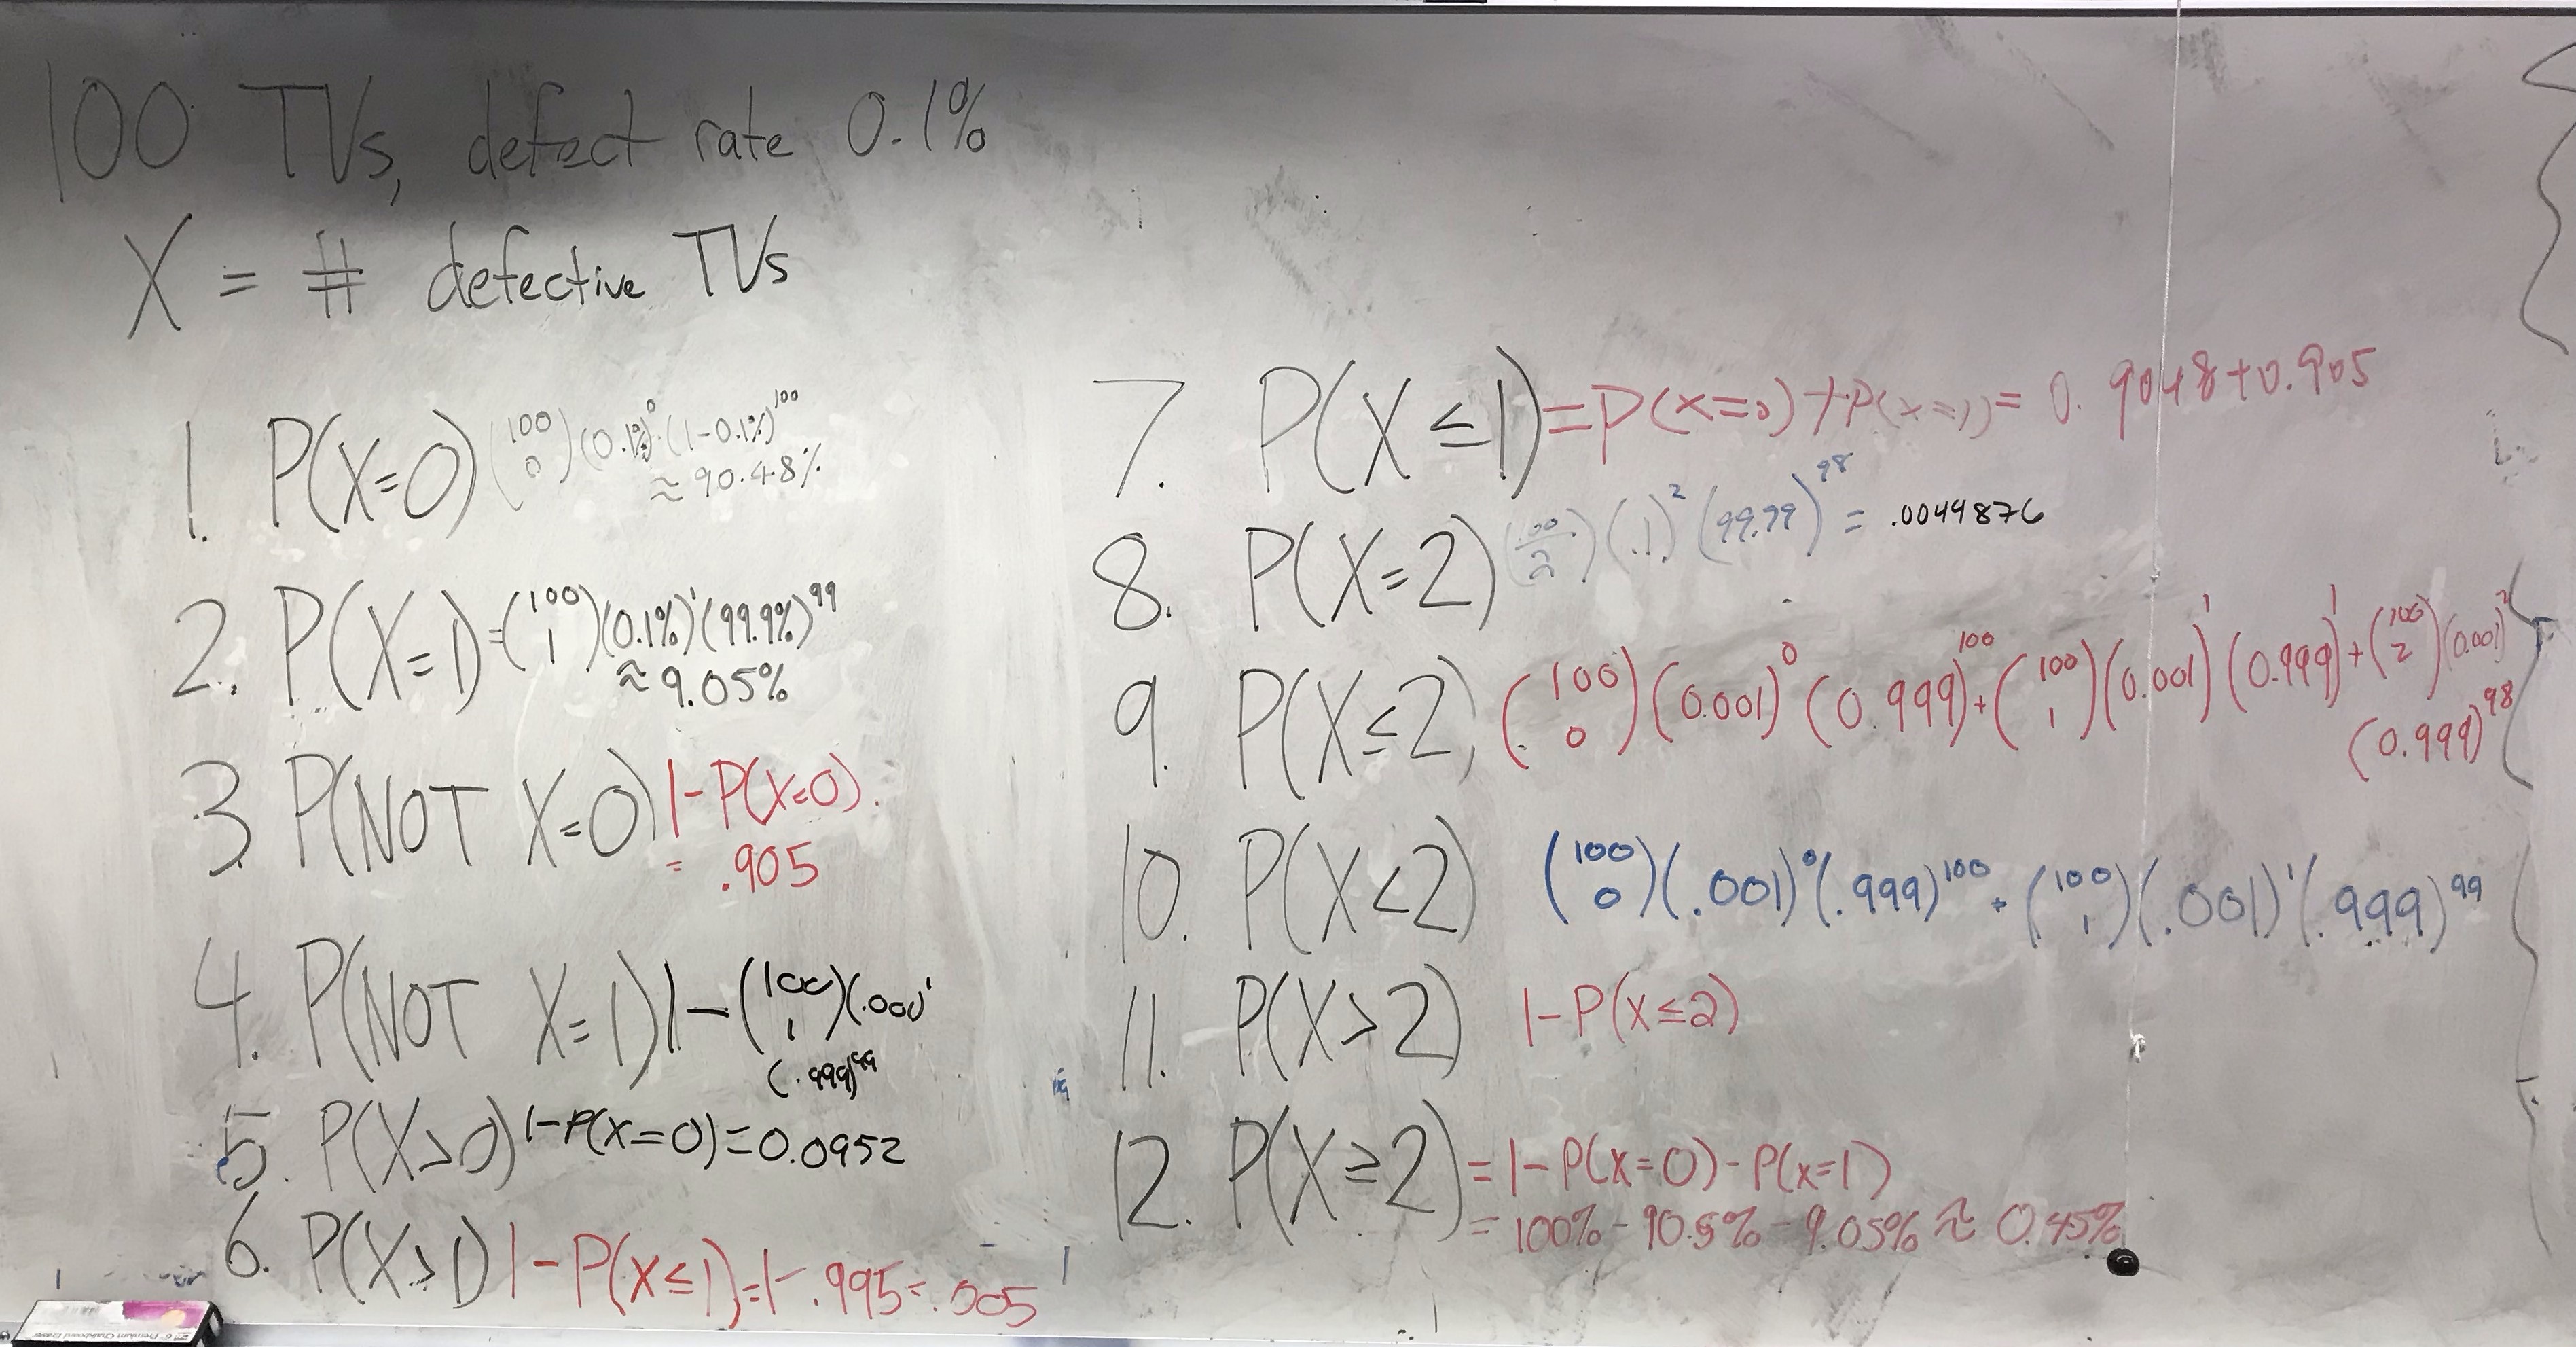 100 TVs, defect rate 0.1%
X = # defective TVs
1. P(X=0) (100 0)(0.1%)^0 (1-0.1%)^100
≈ 90.48%
2. P(X=1) = (100 1)(0.1%)^1 (99.9%)^99
≈ 9.05%
3. P(NOT X=0) 1-P(X=0).
= .905
4. P(NOT X=1) 1-(100 1)(.001)^1
(.999)^99
5. P(X>0) 1-P(X=0)=0.0952
6. P(X>1) 1-P(X≤1)=1-.995=.005
7. P(X≤1)=P(X=0)+P(X=1)= 0.9048+0.905
8. P(X=2) (100 2)(.1)^2 (99.99)^98 = .0044876
9. P(X≤2) (100 0)(0.001)^0 (0.999)^100 + (100 1)(0.001)^1 (0.999)^1 + (100 2)(0.001)^2
(0.999)^98
10. P(X<2) (100 0)(.001)^0 (.999)^100 + (100 1)(.001)^1 (.999)^99
11. P(X>2) 1-P(X≤2)
12. P(X≥2) = 1-P(X=0)-P(X=1)
= 100% - 90.5% - 9.05% ≈ 0.45%